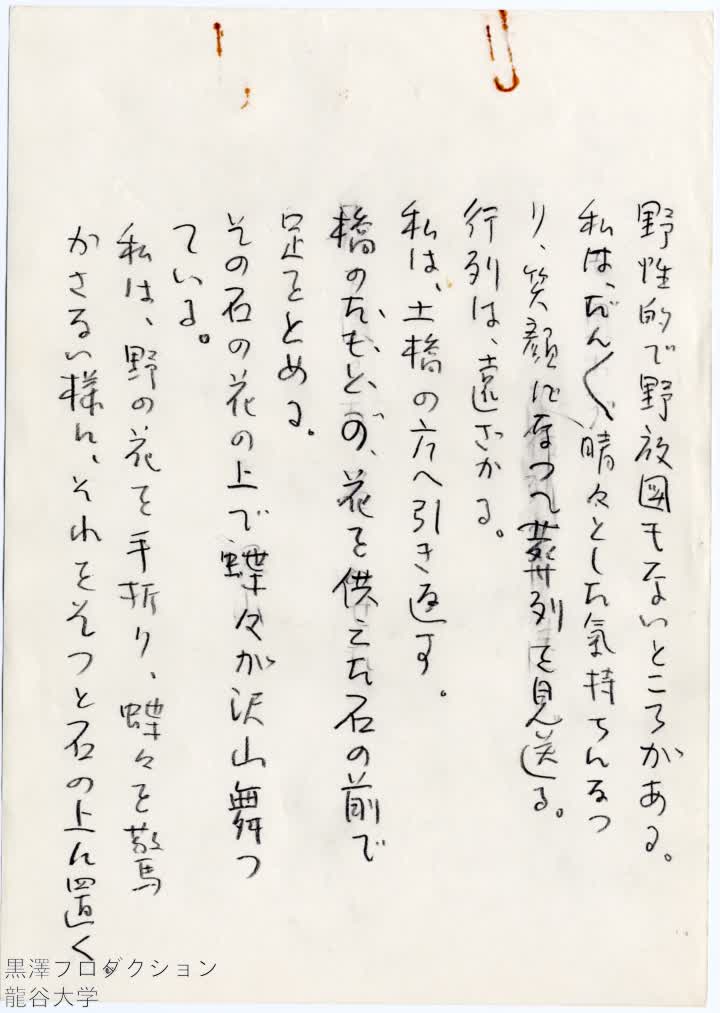 野性的で野放図もないところがある。
私は、だん〱晴々とした氣持ちになつ
り、笑顔になつて葬列を見送る。
行列は、遠ざかる。
私は、土橋の方へ引き返す。
橋のたもとの、花を供えた石の前で
足をとめる。
その石の花の上で蝶々が沢山舞つ
ている。
私は、野の花を手折り、蝶々を驚
かさない様に、それをそつと石の上に置く。
黒澤プロダクション
龍谷大学